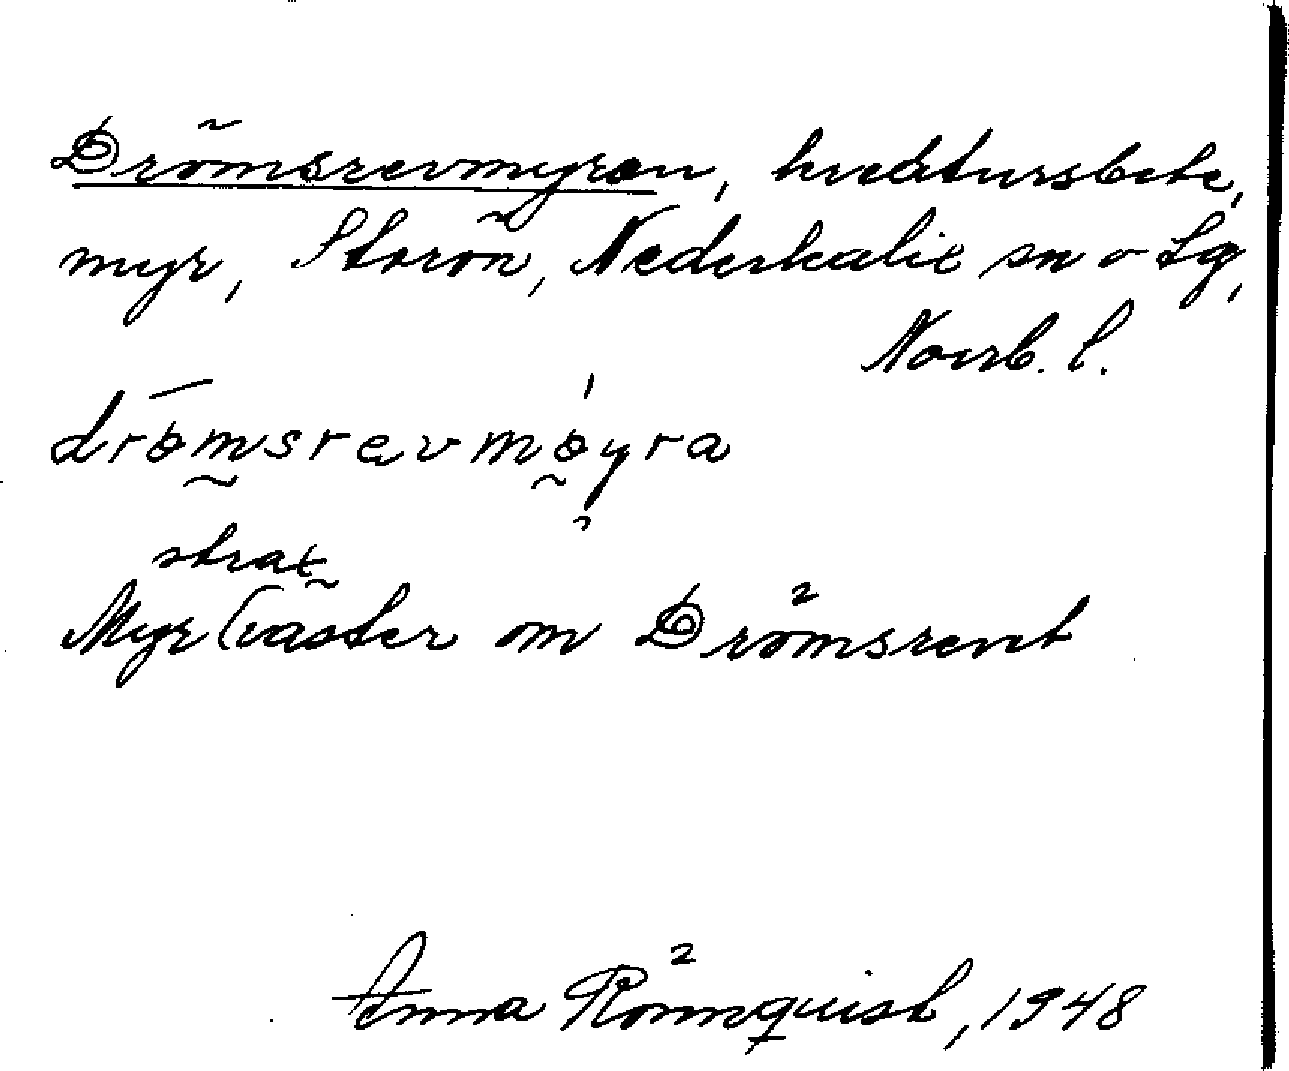 Drömsrevmyren, kreatursbete,
myr, Storön, Nederkalix sn o Lg,
Norrb. l.
drömsrevmøyra
strax
Myr väster om Drömsrevet
Anna Rönnquist, 1948